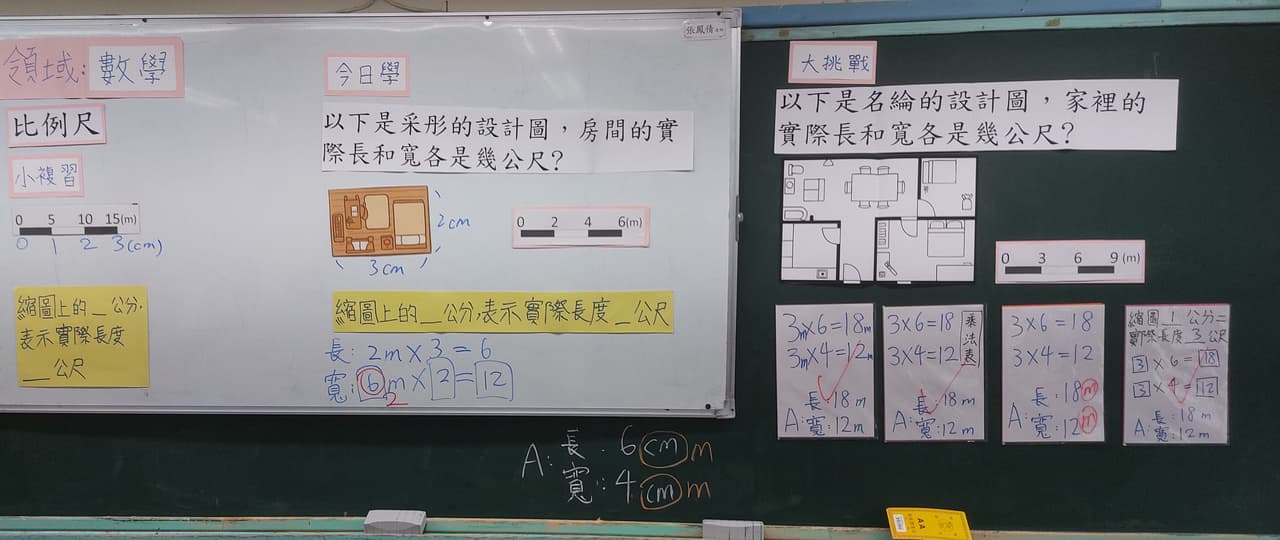 張鳳倩
領域:數學
比例尺
小複習
0 5 10 15(m)
0 1 2 3(cm)
縮圖上的_公分,
表示實際長度
_公尺
今日學
以下是采彤的設計圖,房間的實
際長和寬各是幾公尺?
2cm
3cm
0 2 4 6(m)
縮圖上的_公分,表示實際長度_公尺
長:2m×3=6
寬:6m×2=12
2
A:長:6cm m
寬:4cm m
大挑戰
以下是名綸的設計圖,家裡的
實際長和寬各是幾公尺?
0 3 6 9 (m)
3m×6=18m
3m×4=12m
長:18m
A:寬:12m
3×6=18
3×4=12
乘法表
長:18m
A:寬:12m
3×6=18
3×4=12
長:18m
A:寬:12m
縮圖1公分=
實際長度3公尺
3×6=18
3×4=12
長:18m
A:寬:12m
AA